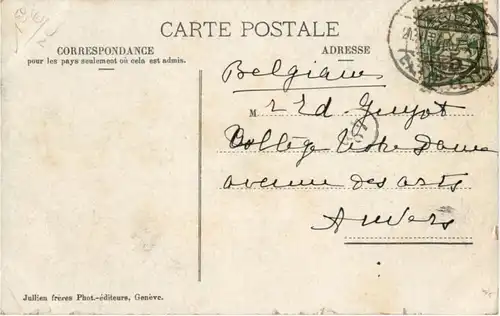 CARTE POSTALE
CORRESPONDANCE
pour les pays seulement où cela est admis.
ADRESSE
Belgium
M
Guyot
Collège Notre Dame
avenue des arts
Anvers
Jullien frères Phot.-éditeurs, Genève.